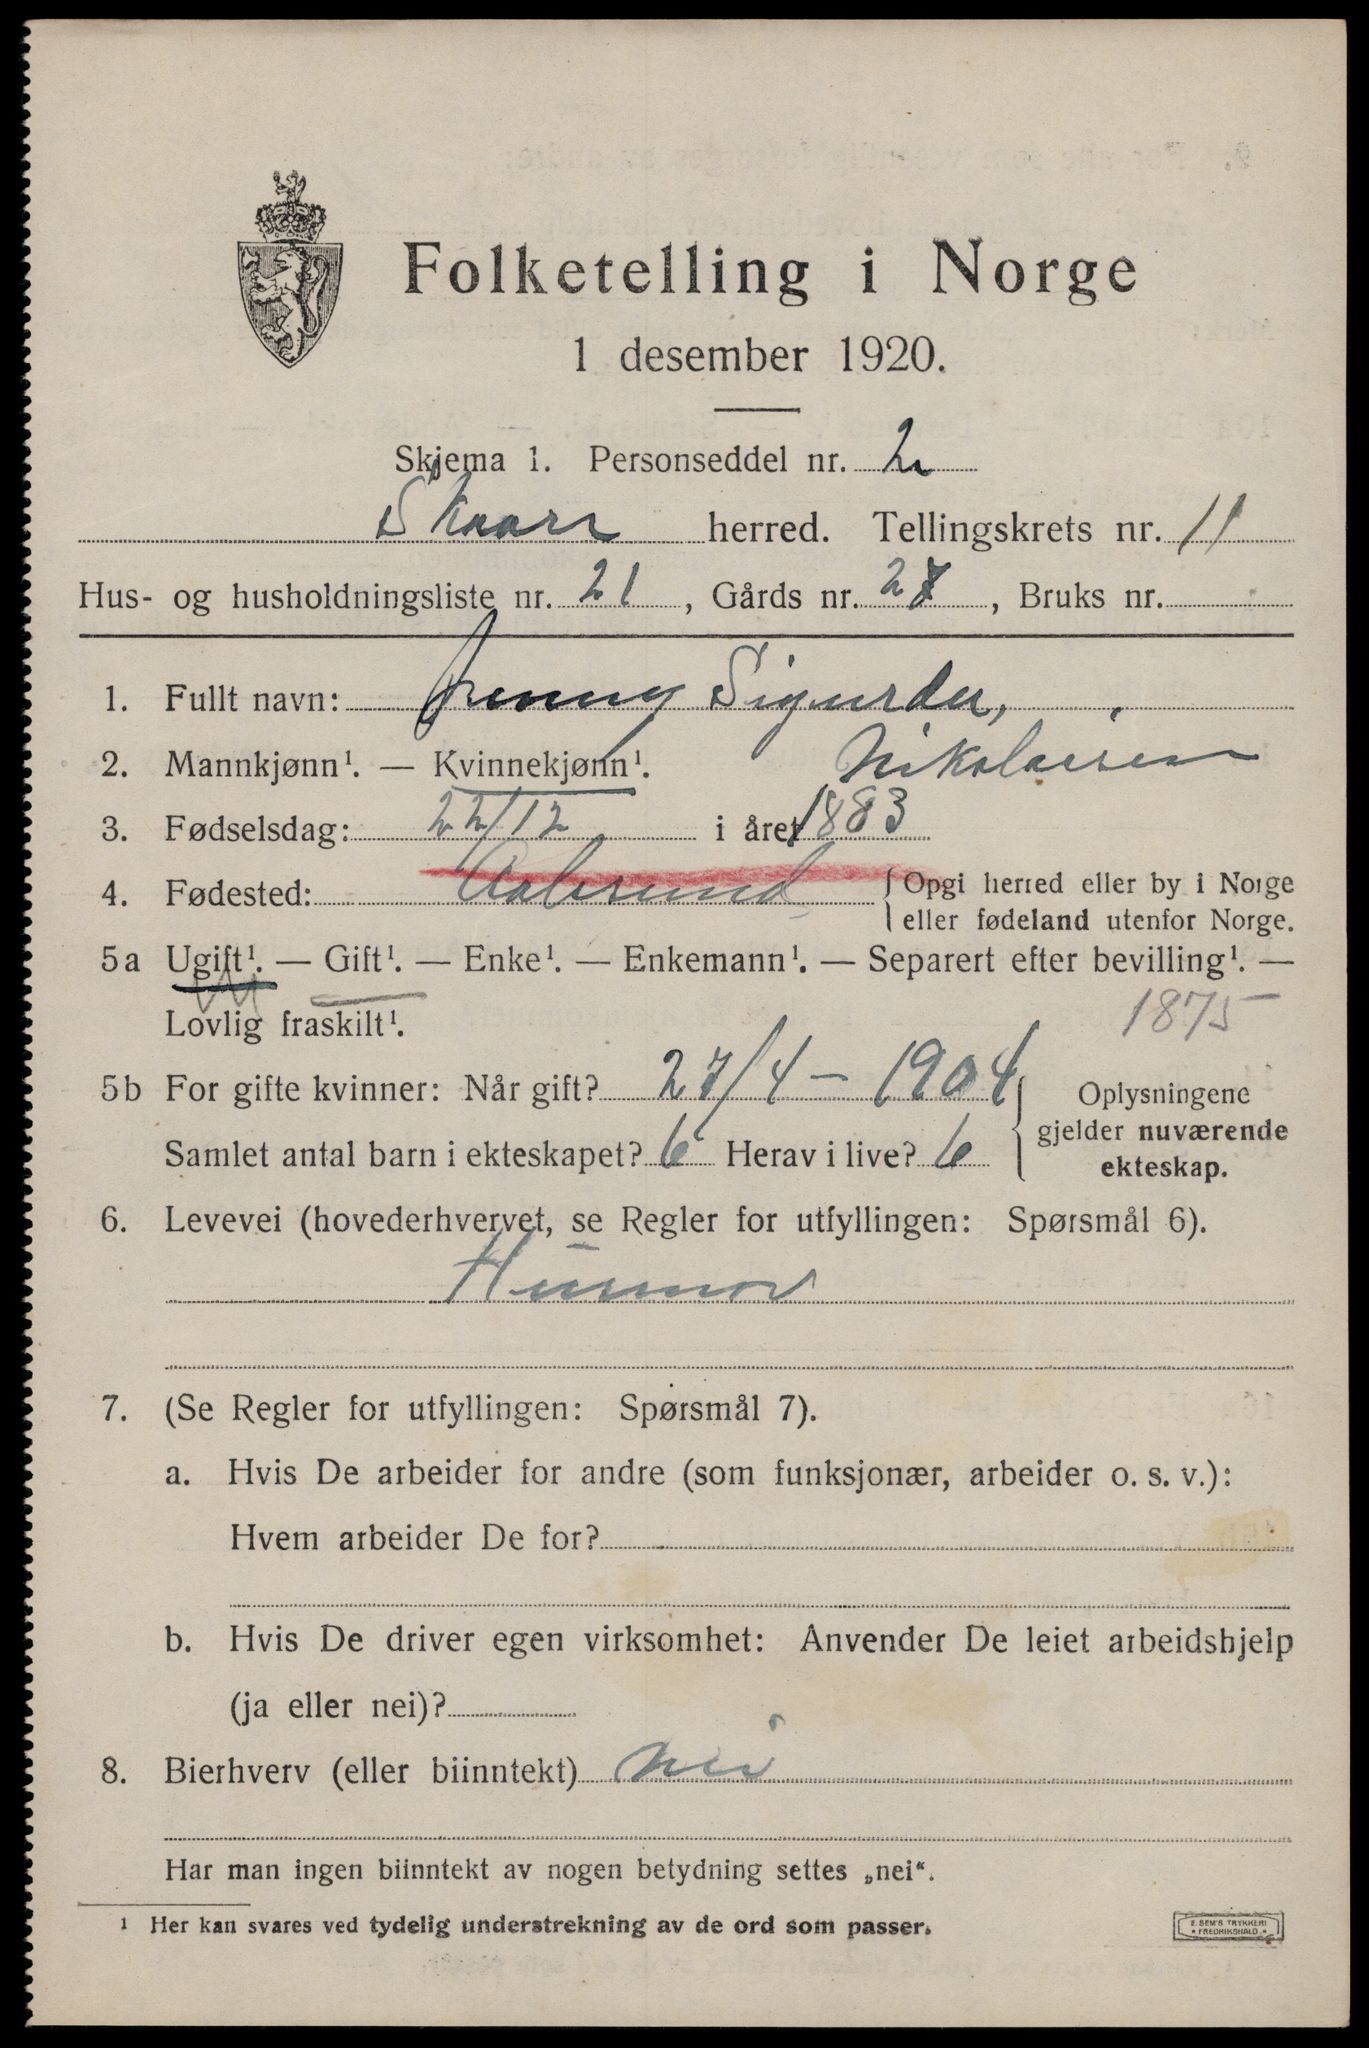 Folketelling i Norge
1 desember 1920.
Skjema 1. Personseddel nr. 2
Skaare herred. Tellingskrets nr. 11
Hus- og husholdningsliste nr. 21, Gårds nr. 27, Bruks nr.
1. Fullt navn: Jenny Sigurda,
2. Mannkjønn¹. — Kvinnekjønn¹. Nikolaisen
3. Fødselsdag: 22/12 i året 1883
4. Fødested: Aalesund { Opgi herred eller by i Norge
eller fødeland utenfor Norge.
5a Ugift¹. — Gift¹. — Enke¹. — Enkemann¹. — Separert efter bevilling¹. —
Lovlig fraskilt¹. 1875
5b For gifte kvinner: Når gift? 27/4 – 1904
Samlet antal barn i ekteskapet? 6 Herav i live? 6
Oplysningene
gjelder nuværende
ekteskap.
6. Levevei (hovederhvervet, se Regler for utfyllingen: Spørsmål 6).
Husmor
7. (Se Regler for utfyllingen: Spørsmål 7).
a. Hvis De arbeider for andre (som funksjonær, arbeider o. s. v.):
Hvem arbeider De for?
b. Hvis De driver egen virksomhet: Anvender De leiet arbeidshjelp
(ja eller nei)?
8. Bierhverv (eller biinntekt) nei
Har man ingen biinntekt av nogen betydning settes „nei“.
¹ Her kan svares ved tydelig understrekning av de ord som passer.
E. SEM'S TRYKKERI
* FREDRIKSHALD *